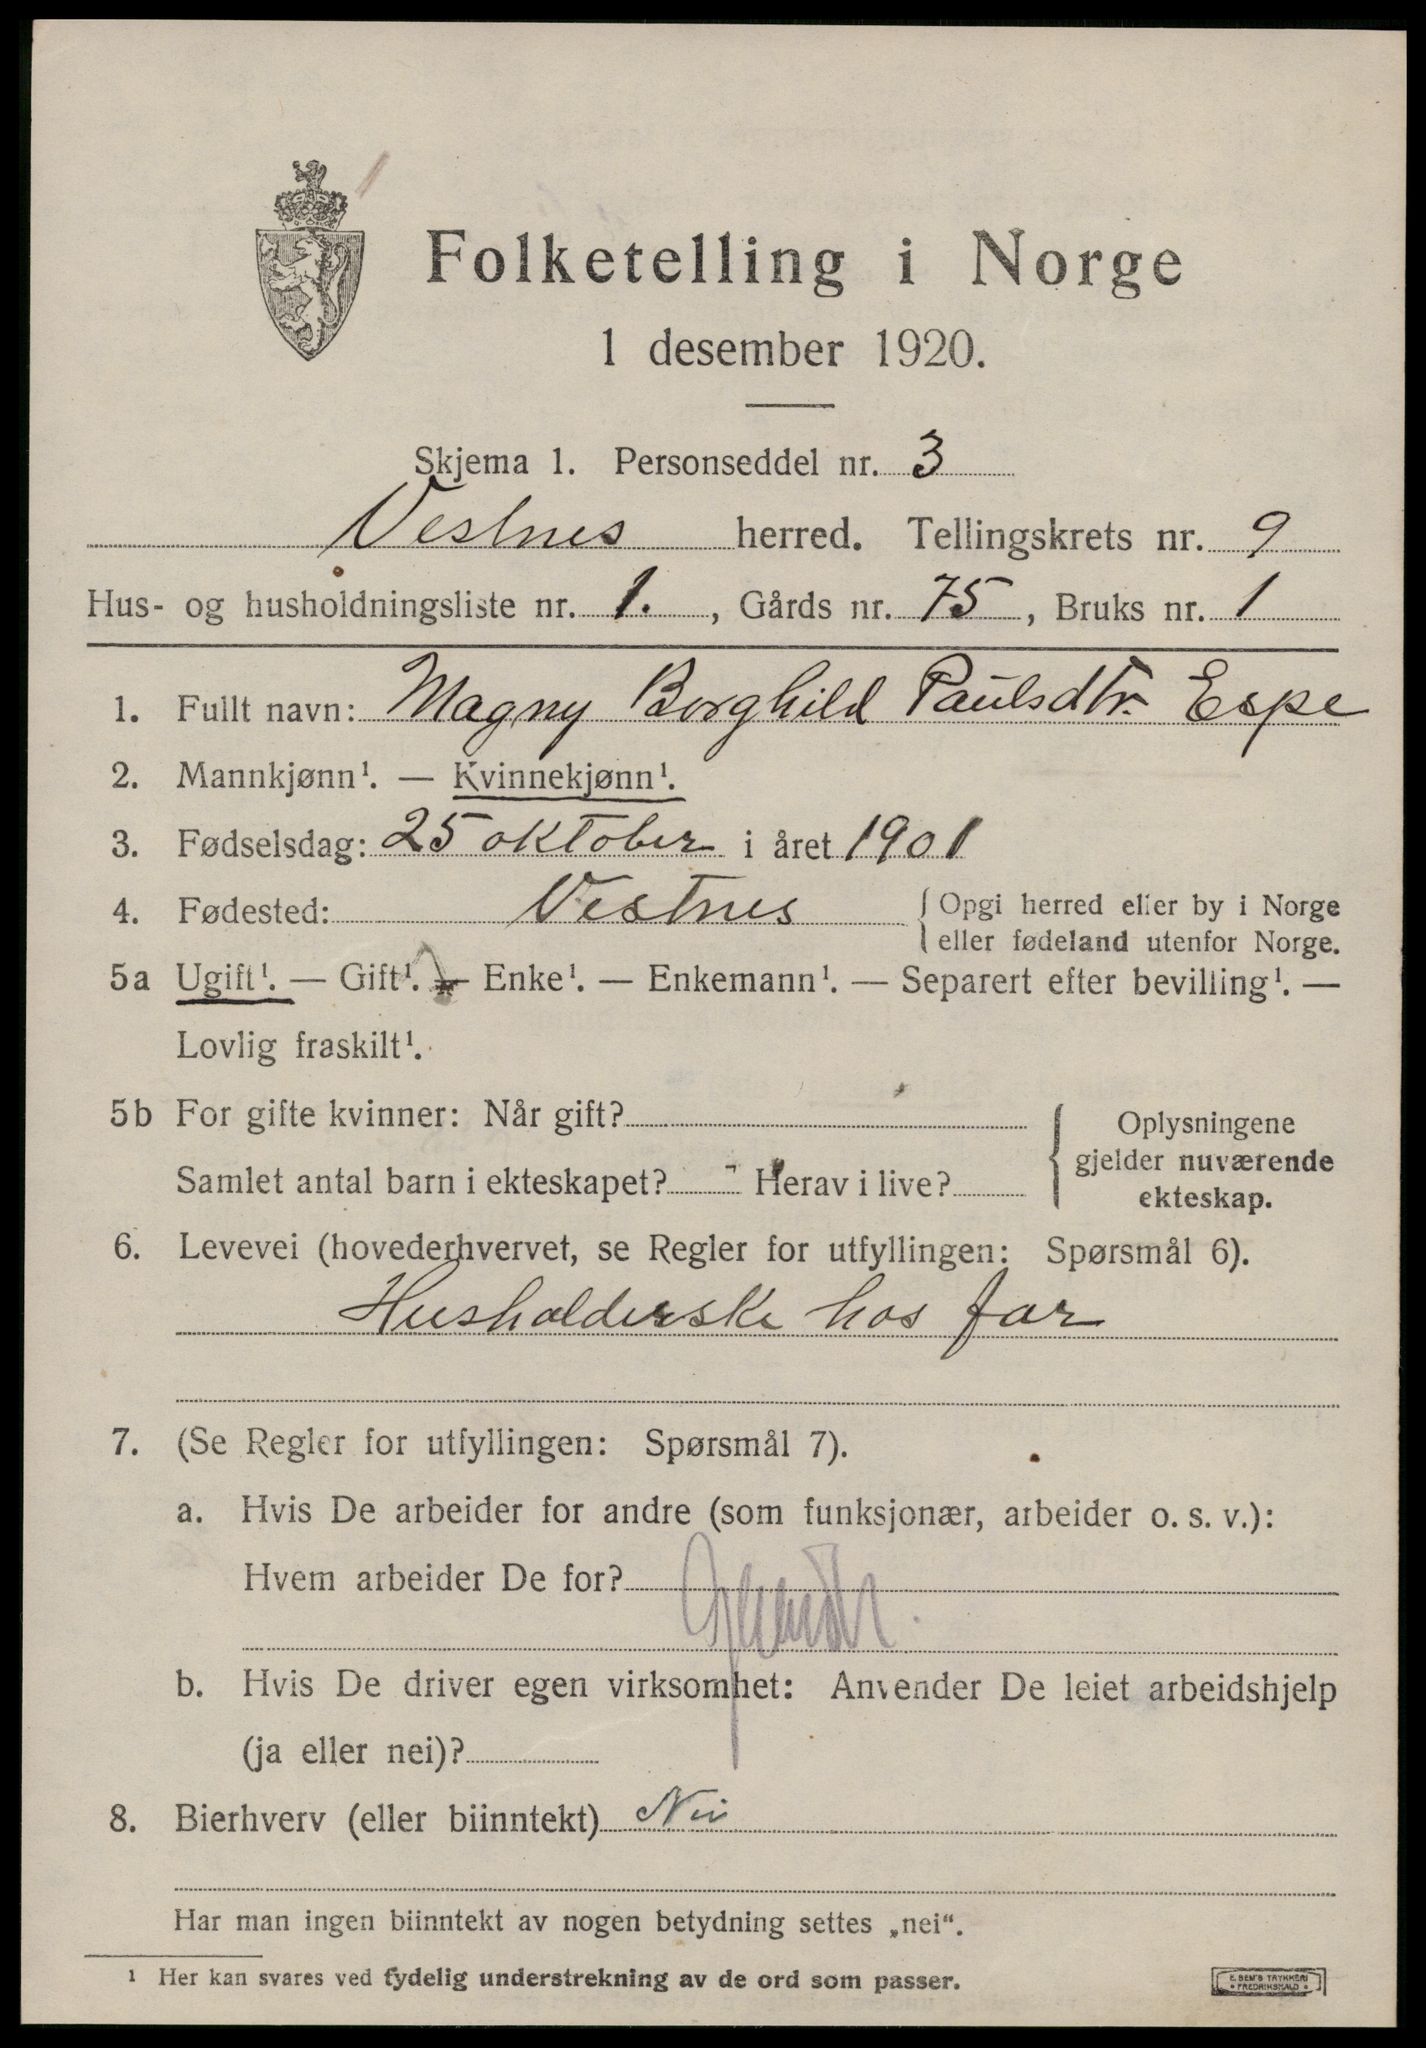 Folketelling i Norge
1 desember 1920.
Skjema 1. Personseddel nr. 3
Vestnes herred. Tellingskrets nr. 9
Hus- og husholdningsliste nr. 1. , Gårds nr. 75 , Bruks nr. 1
1. Fullt navn: Magny Borghild Paulsdtr. Espe
2. Mannkjønn¹. — Kvinnekjønn¹.
3. Fødselsdag: 25 oktober i året 1901
4. Fødested: Vestnes { Opgi herred eller by i Norge
eller fødeland utenfor Norge.
5a Ugift¹. — Gift¹. — Enke¹. — Enkemann¹. — Separert efter bevilling¹. —
Lovlig fraskilt¹.
5b For gifte kvinner: Når gift?
Samlet antal barn i ekteskapet? Herav i live?
{ Oplysningene
gjelder nuværende
ekteskap.
6. Levevei (hovederhvervet, se Regler for utfyllingen: Spørsmål 6).
Husholderske hos far
7. (Se Regler for utfyllingen: Spørsmål 7).
a. Hvis De arbeider for andre (som funksjonær, arbeider o. s. v.):
Hvem arbeider De for?
b. Hvis De driver egen virksomhet: Anvender De leiet arbeidshjelp
(ja eller nei)?
8. Bierhverv (eller biinntekt) Nei
Har man ingen biinntekt av nogen betydning settes „nei“.
¹ Her kan svares ved tydelig understrekning av de ord som passer.
E. SEM'S TRYKKERI
• FREDRIKSHALD •